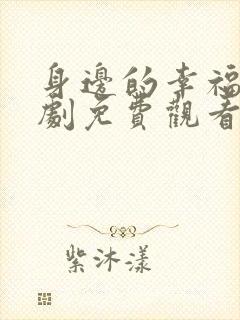 身邊的幸福
劇免費觀看
紫沐漾